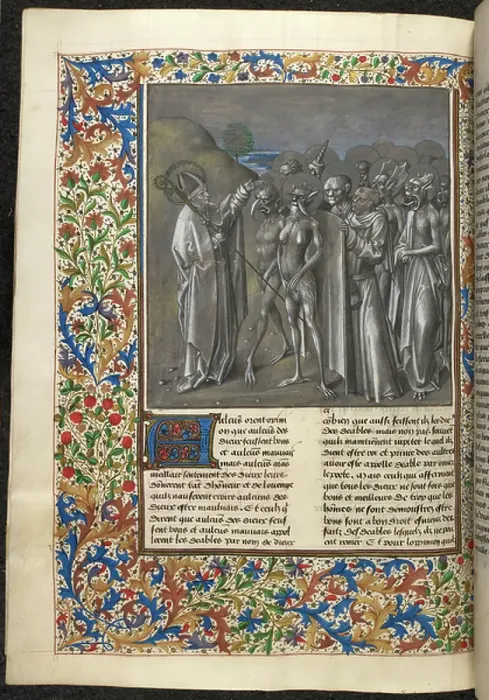 Aulcuns orent opini
on que aulcuns des
dieux feussent bons
et aulcuns mauvais
mais aulcuns aians
meilleur sentement des dieux leurs
donnerent tant dhonneur et de louenge
quilz nauserent croire aulcuns des
dieux estre mauvais. Et ceulx q
dirent que aulcuns des dieux feus
sent bons et aulcuns mauvais appel
lerent les deables par nom de dieux
combien que aussi feissent ilz les dieux
des deables mais non pas souvent
quilz maintiennent iupiter lequel ilz
dient estre roy et prince des aultres
avoir este appelle deable par omer
le poete. Mais ceulx qui afferment
que tous les dieux ne sont fors que
bons et meilleurs de trop que les
hommes ne sont
bons sont a bon droit esmeuz des
faitz des deables lesquelz ilz ne peu
ent renier. Et pour